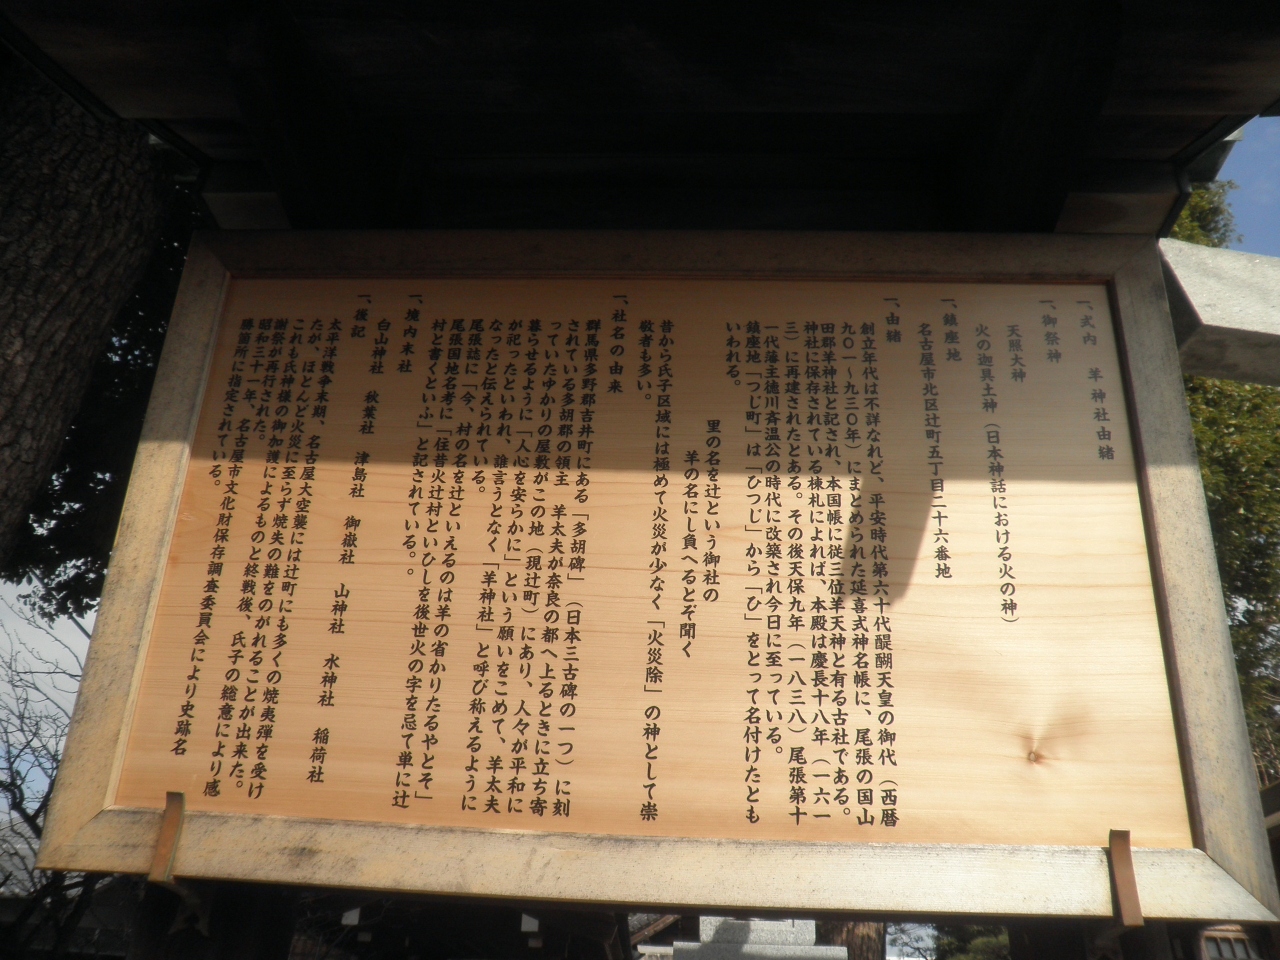 一、式内　羊神社由緒
一、御祭神
天照大神
火の迦具土神（日本神話における火の神）
一、鎮座地
名古屋市北区辻町五丁目二十六番地
一、由緒
創立年代は不詳なれど、平安時代第六十代醍醐天皇の御代（西暦
九〇一〜九三〇年）にまとめられた延喜式神名帳に、尾張の国山
田郡羊神社と記され、本国帳に従三位羊天神と有る古社である。
神社に保存されている棟札によれば、本殿は慶長十八年（一六一
三）に再建されたとある。その後天保九年（一八三八）尾張第十
一代藩主徳川斉温公の時代に改築され今日に至っている。
鎮座地「つじ町」は「ひつじ」から「ひ」をとって名付けたとも
いわれる。
里の名を辻という御社の
羊の名にし負へるとぞ聞く
昔から氏子区域には極めて火災が少なく「火災除」の神として崇
敬者も多い。
一、社名の由来
群馬県多野郡吉井町にある「多胡碑」（日本三古碑の一つ）に刻
されている多胡郡の領主　羊太夫が奈良の都へ上るときに立ち寄
っていたゆかりの屋敷がこの地（現辻町）にあり、人々が平和に
暮らせるように「人心を安らかに」という願いをこめて、羊太夫
が祀ったといわれ、誰言うとなく「羊神社」と呼び称えるように
なったと伝えられている。
尾張誌に「今、村の名を辻といえるのは羊の省かりたるやとぞ」
尾張国地名考に「往昔火辻村といひしを後世火の字を忌て単に辻
村と書くといふ」と記されている。。
一、境内末社
白山神社　秋葉社　津島社　御嶽社　山神社　水神社　稲荷社
一、後記
太平洋戦争末期、名古屋大空襲には辻町にも多くの焼夷弾を受け
たが、ほとんど火災に至らず焼失の難をのがれることが出来た。
これも氏神様の御加護によるものと終戦後、氏子の総意により感
謝祭が再行された。
昭和三十一年、名古屋市文化財保存調査委員会により史跡名
勝箇所に指定されている。